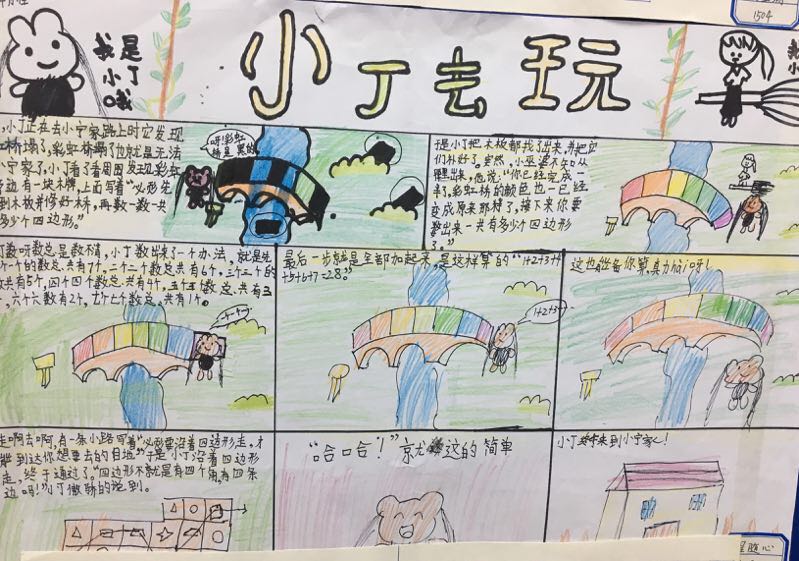 1504
我是
小丁
哦
小丁去玩
我
小
小丁正在去小宁家路上时突发现
虹桥塌了,彩虹桥塌了也就是无法
宁家了,小丁看了看周围发现彩虹
旁边有一块木牌,上面写着“必须先
到木板并修好桥,再数一数一共
多少个四边形。”
呀!彩虹
桥是黑的
于是小丁把木板都找了出来,并把它
们补好了。突然,小巫婆不知从
哪里出来,他说:“你已经完成一
半了,彩虹桥的颜色也一已经
变成原来那样了,接下来你要
数出来一共有多少个四边形
丁数呀数总是数不清,小丁数出了一个办法,就是先
个一个的数总共有7个。二个二个数总共有6个,三个三个的
数共有5个,四个四个数总共有4个,五个五个数总共有三
,六个六个数有2个,七个七个数总共有1个。
最后一步就是全部加起来,是这样算的“1+2+3+4
+5+6+7=28。”
1+2+3…
这也能备你算,真力hài呀!
走啊去啊,有一条小路写着“必须要沿着四边形走,才
能到达你想要去的目地。”于是小丁沿着四边形
走,终于通过了。“四边形不就是有四个角,有四条
边吗!”小丁傲骄的说到。
“哈哈!”就这的简单
小丁终于来到小宁家了!
星随心